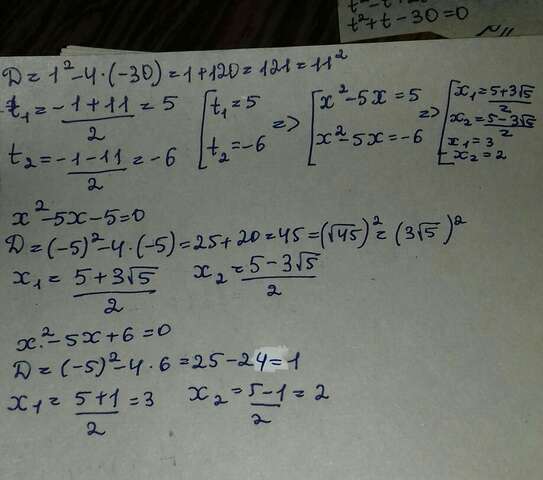 t²+t-30=0
D=1²-4·(-30)=1+120=121=11²
t₁=(-1+11)/2=5 [t₁=5 t₂=-6 => [x²-5x=5 x²-5x=-6 => [x₁=(5+3√5)/2 x₂=(5-3√5)/2 x₁=3 x₂=2
t₂=(-1-11)/2=-6
x²-5x-5=0
D=(-5)²-4·(-5)=25+20=45=(√45)²=(3√5)²
x₁=(5+3√5)/2 x₂=(5-3√5)/2
x²-5x+6=0
D=(-5)²-4·6=25-24=1
x₁=(5+1)/2=3 x₂=(5-1)/2=2